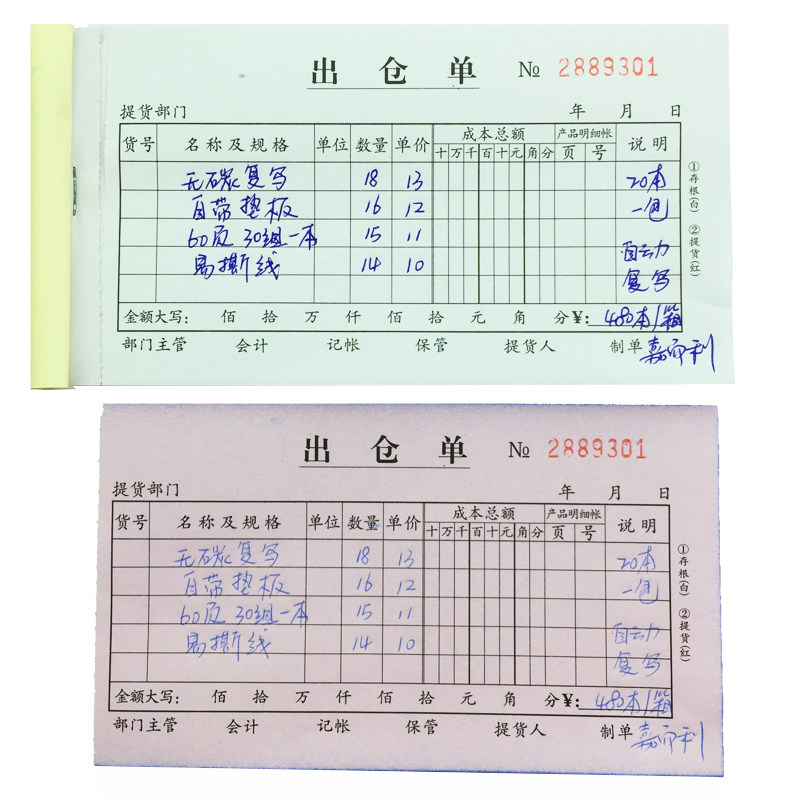 出仓单 № 2889301
提货部门 年 月 日
货号 名称及规格 单位 数量 单价 成本总额 产品明细帐 说明
十 万 千 百 十 元 角 分 页 号
无碳复写 18 13 20本
自带垫板 16 12 一包
60页 30组一本 15 11
易撕线 14 10 自动
复写
金额大写: 佰 拾 万 仟 佰 拾 元 角 分 ¥: 480本/箱
部门主管 会计 记帐 保管 提货人 制单 嘉而利
①存根(白) ②提货(红)
出仓单 № 2889301
提货部门 年 月 日
货号 名称及规格 单位 数量 单价 成本总额 产品明细帐 说明
十 万 千 百 十 元 角 分 页 号
无碳复写 18 13 20本
自带垫板 16 12 一包
60页 30组一本 15 11
易撕线 14 10 自动
复写
金额大写: 佰 拾 万 仟 佰 拾 元 角 分 ¥: 480本/箱
部门主管 会计 记帐 保管 提货人 制单 嘉而利
①存根(白) ②提货(红)